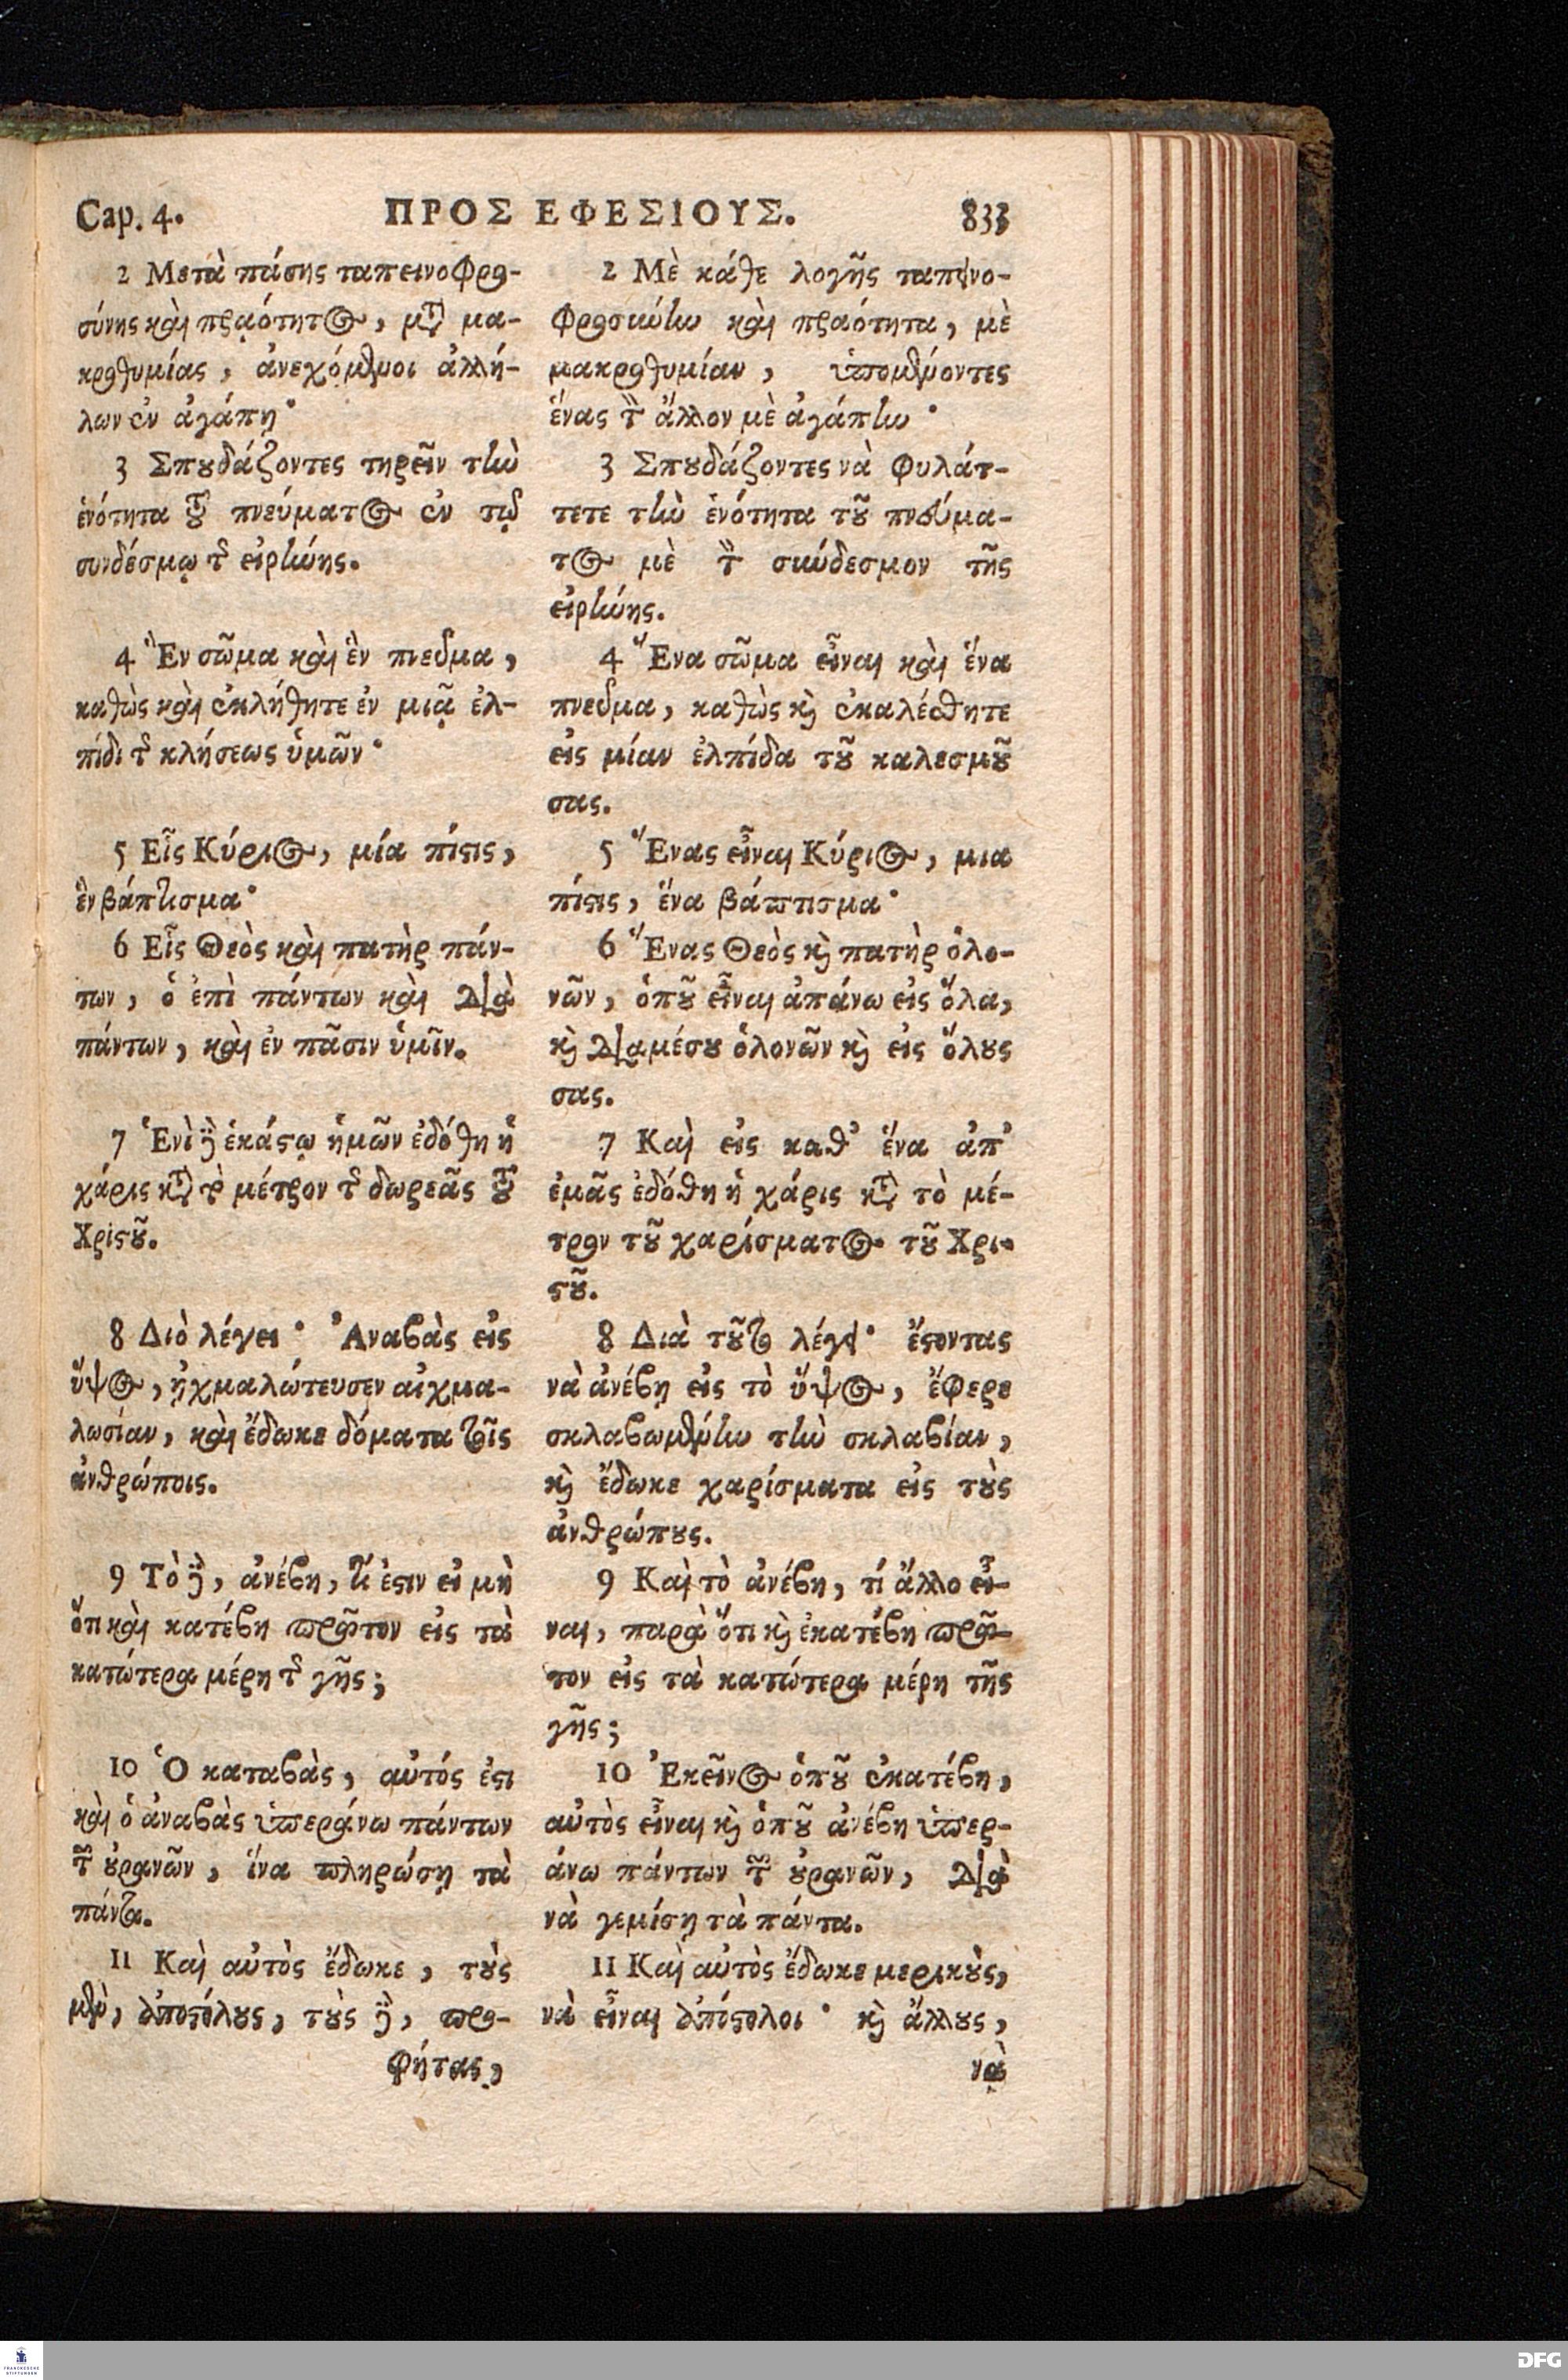 Cap. 4. ΠΡΟΣ ΕΦΕΣΙΟΥΣ. 833
2 Μετὰ πάσης ταπεινοφρο-
σύνης καὶ πρᾳότητος, μτ μα-
κροθυμίας, ἀνεχόμενοι ἀλλή-
λων ἐν ἀγάπῃ·
3 Σπȣδάζοντες τηρεῖν τὴν
ἑνότητα τȣ͂ πνεύματος ἐν τῷ
συνδέσμῳ τῆς εἰρήνης.
4 Ἓν σῶμα καὶ ἓν πνεῦμα,
καθὼς καὶ ἐκλήθητε ἐν μιᾷ ἐλ-
πίδι τῆς κλήσεως ὑμῶν·
5 Εἷς Κύριος, μία πίϛις,
ἓν βάπτισμα·
6 Εἷς Θεὸς καὶ πατὴρ πάν-
των, ὁ ἐπὶ πάντων καὶ διὰ
πάντων, καὶ ἐν πᾶσιν ὑμῖν.
7 Ἑνὶ δὲ ἑκάϛῳ ἡμῶν ἐδόθη ἡ
χάρις κτ τὸ μέτρον τῆς δωρεᾶς τȣ͂
Χριϛȣ͂.
8 Διὸ λέγει· Ἀναβὰς εἰς
ὕψος, ᾐχμαλώτευσεν αἰχμα-
λωσίαν, καὶ ἔδωκε δόματα τοῖς
ἀνθρώποις.
9 Τὸ δὲ, ἀνέβη, τί ἐϛιν εἰ μὴ
ὅτι καὶ κατέβη πρῶτον εἰς τὰ
κατώτερα μέρη τῆς γῆς;
10 Ὁ καταβὰς, αὐτός ἐϛι
καὶ ὁ ἀναβὰς ὑπεράνω πάντων
τῶν ȣ̓ρανῶν, ἵνα πληρώσῃ τὰ
πάντα.
11 Καὶ αὐτὸς ἔδωκε, τȣ̀ς
μὲν, ἀποϛόλȣς, τȣ̀ς δὲ, προ-
φήτας,
2 Μὲ κάθε λογῆς ταπεινο-
φροσύνην καὶ πρᾳότητα, μὲ
μακροθυμίαν, ὑπομένοντες
ἕνας τὸν ἄλλον μὲ ἀγάπην·
3 Σπȣδάζοντες νὰ φυλάτ-
τετε τὴν ἑνότητα τȣ͂ πνεύμα-
τος μὲ τὸν σύνδεσμον τῆς
εἰρήνης.
4 Ἕνα σῶμα εἶναι καὶ ἕνα
πνεῦμα, καθὼς κὶ ἐκαλέσθητε
εἰς μίαν ἐλπίδα τȣ͂ καλεσμȣ͂
σας.
5 Ἕνας εἶναι Κύριος, μια
πίϛις, ἕνα βάπτισμα·
6 Ἕνας Θεὸς κὶ πατὴρ ὁλο-
νῶν, ὁπȣ͂ εἶναι ἀπάνω εἰς ὅλα,
κὶ διαμέσȣ ὁλονῶν κὶ εἰς ὅλȣς
σας.
7 Καὶ εἰς καθ' ἕνα ἀπ'
ἐμᾶς ἐδόθη ἡ χάρις κτ τὸ μέ-
τρον τȣ͂ χαρίσματος τȣ͂ Χρι-
ϛȣ͂.
8 Διὰ τȣ͂το λέγει· ἔϛοντας
νὰ ἀνέβῃ εἰς τὸ ὕψος, ἔφερε
σκλαβωμένην τὴν σκλαβίαν,
κὶ ἔδωκε χαρίσματα εἰς τȣ̀ς
ἀνθρώπȣς.
9 Καὶ τὸ ἀνέβη, τί ἄλλο εἶ-
ναι, παρὰ ὅτι κὶ ἐκατέβη πρῶ-
τον εἰς τὰ κατώτερα μέρη τῆς
γῆς;
10 Ἐκεῖνος ὁπȣ͂ ἐκατέβη,
αὐτὸς εἶναι κὶ ὁπȣ͂ ἀνέβη ὑπερ-
άνω πάντων τῶν ȣ̓ρανῶν, διὰ
νὰ γεμίσῃ τὰ πάντα.
11 Καὶ αὐτὸς ἔδωκε μερικȣ̀ς,
νὰ εἶναι ἀπόϛολοι· κὶ ἄλλȣς,
νὰ
FRANCKESCHE
STIFTUNGEN
DFG